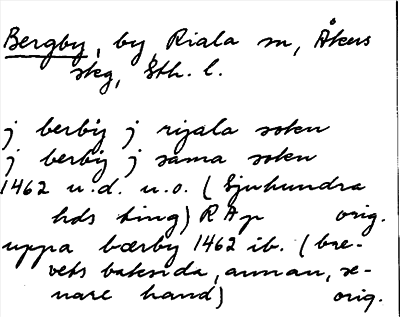 Bergby, by, Riala sn, Åkers
skg, Sth. l.
j berby j rijala sokn
j berby j sama sokn
1462 u.d. u.o. (Sjuhundra
hds ting) RAp orig.
uppa bærby 1462 ib. (bre-
vets baksida, annan, se-
nare hand) orig.